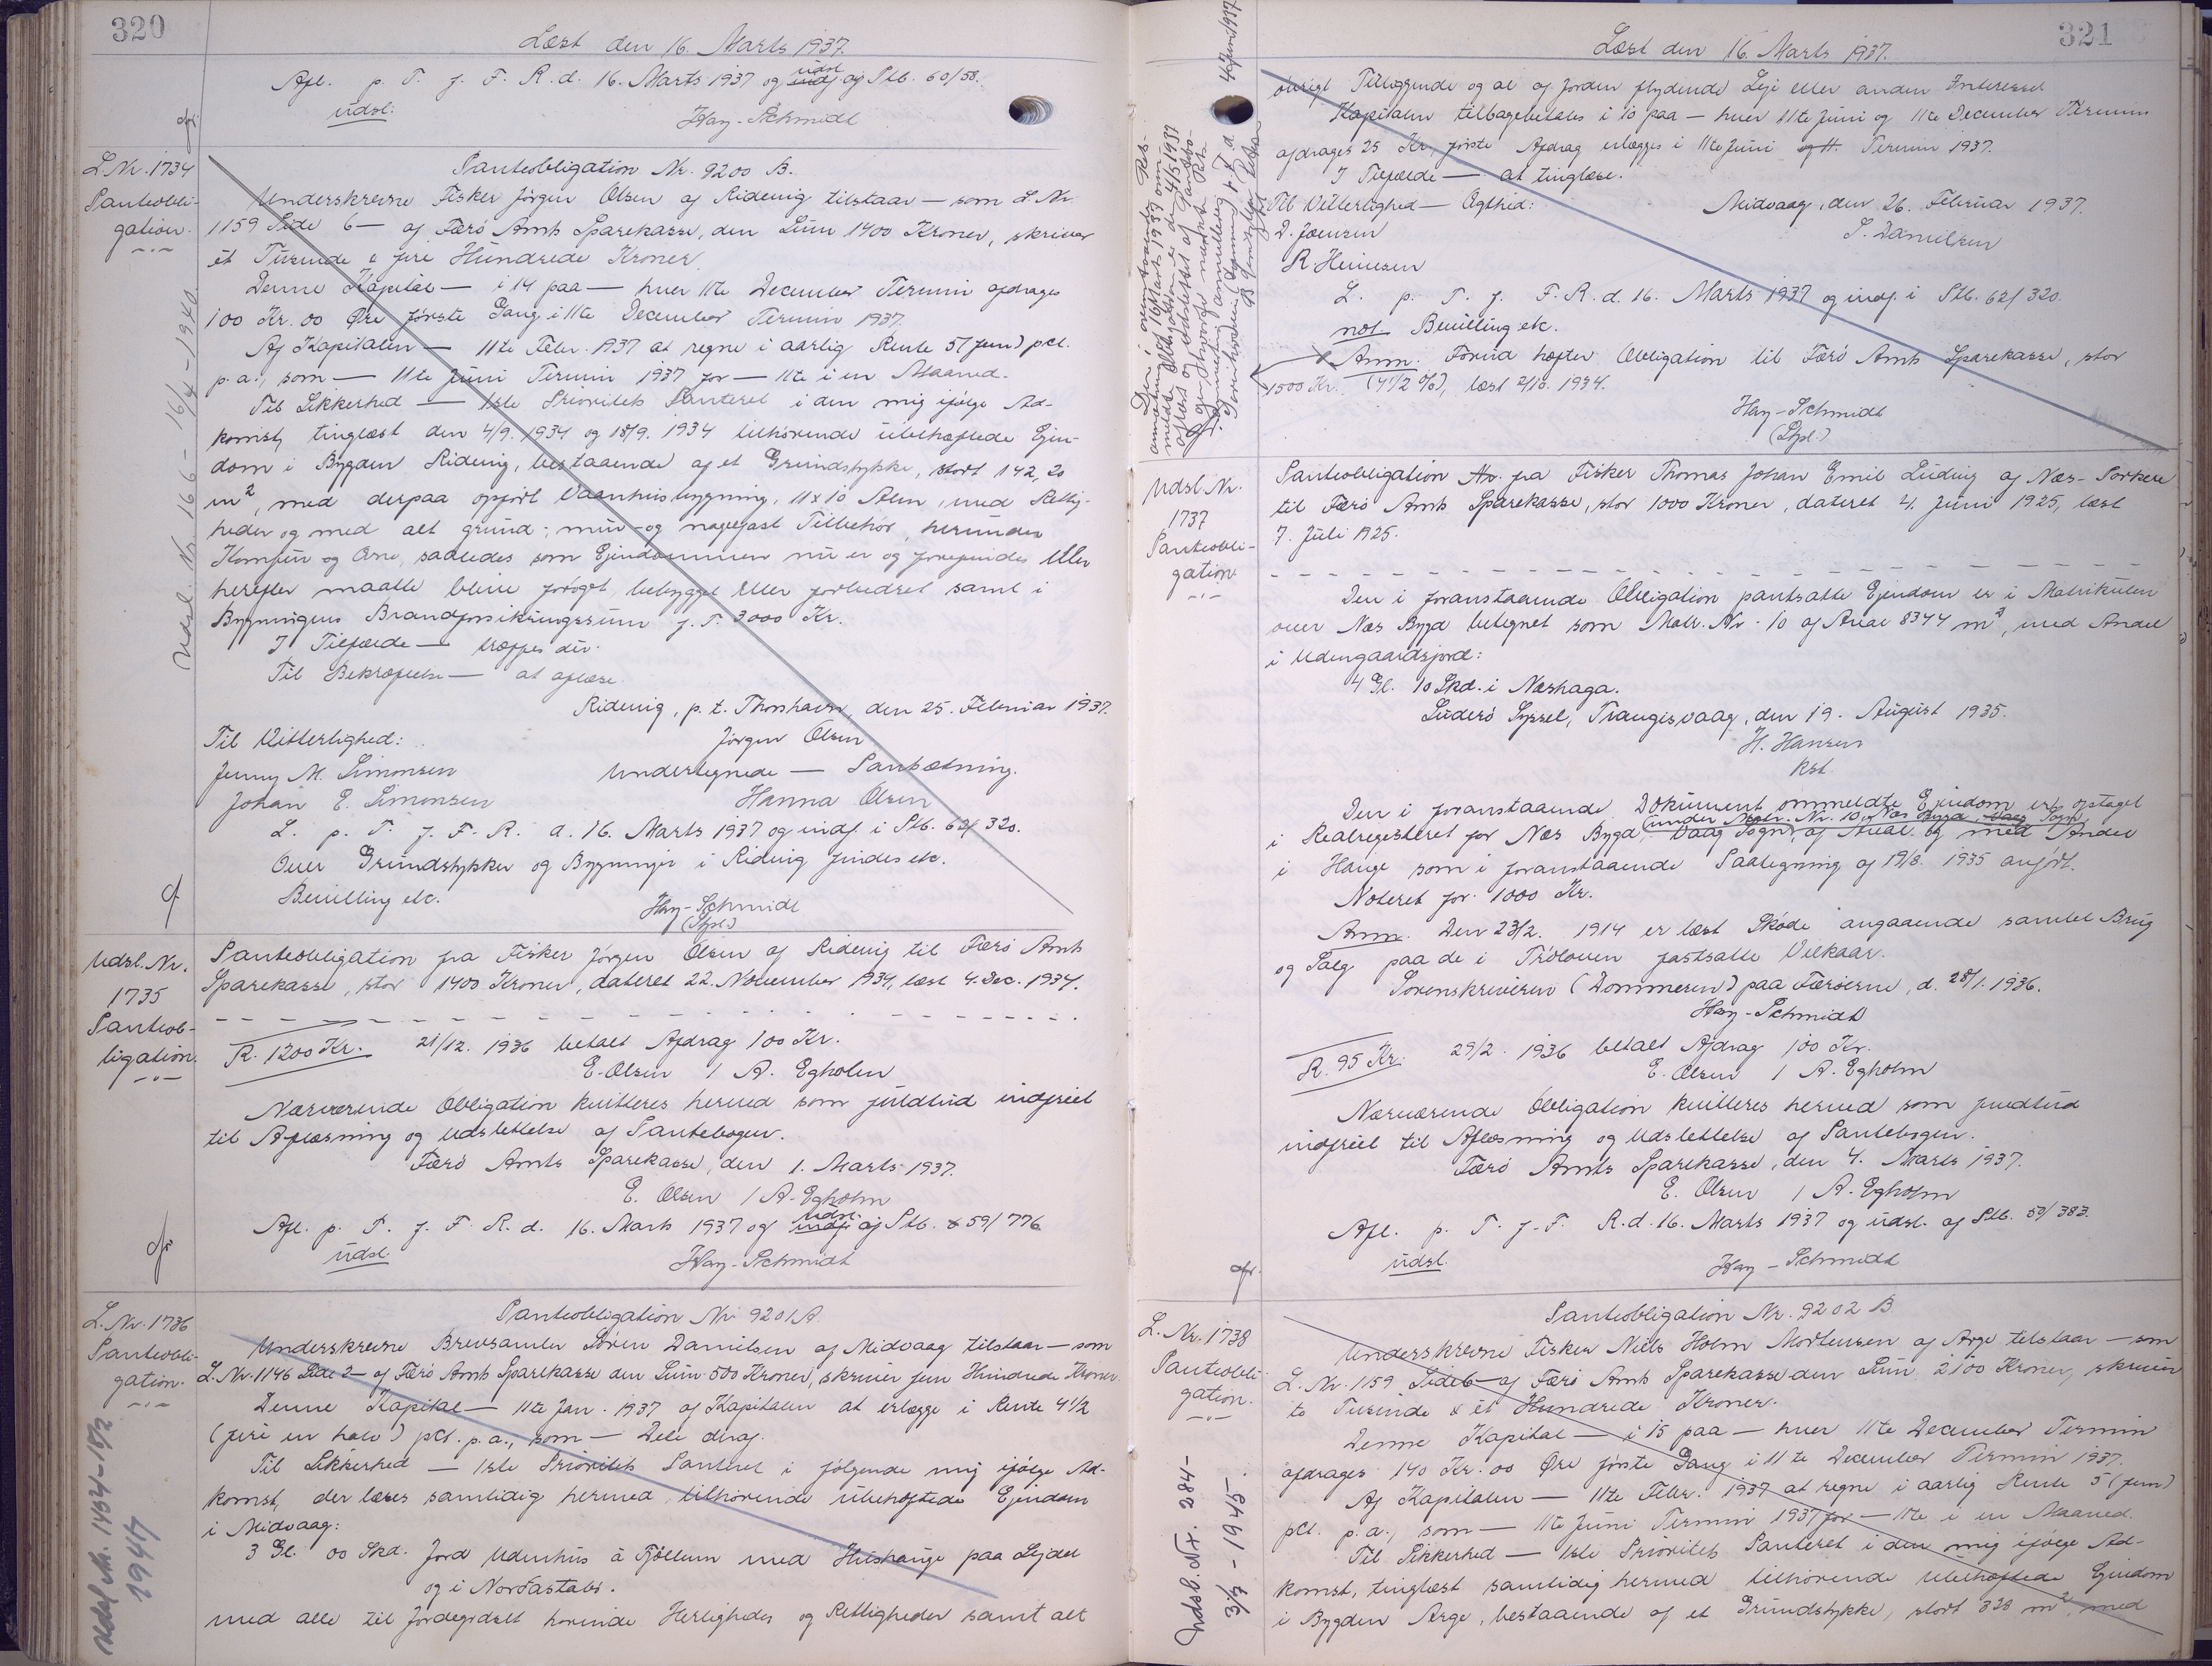 320
Læst den 16. Marts 1937.
Afl. p. T. f. F. R. d. 16. Marts 1937 og indf udsl. af Ptb. 60/58.
udsl.
Hay-Schmidt
L. Nr. 1734
Panteobli-
gation.
Panteobligation Nr. 9200 B.
Underskrevne Fisker Jörgen Olsen af Ridevig tilstaar — som L. Nr.
1159 Side 6 — af Færö Amts Sparekasse, den Sum 1400 Kroner, skriver
et Tusinde & fire Hundrede Kroner.
Denne Kapital — i 14 paa — hver 11te December Termin afdrages
100 Kr. 00 Øre förste Gang i 11te December Termin 1937.
Af Kapitalen — 11te Febr. 1937 at regne i aarlig Rente 5 (fem) pct.
p. a., som — 11te Juni Termin 1937 for — 11te i en Maaned.
Til Sikkerhed — 1ste Prioritets Panteret i den mig ifölge Ad-
komst, tinglæst den 4/9. 1934 og 18/9. 1934 tilhörende ubehæftede Ejen-
dom i Bygden Ridevig, bestaaende af et Grundstykke, stort 142,20
m², med derpaa opfört Vaanhusbygning, 11 x 10 Alen, med Rettig-
heder og med alt grund-, mur- og nagelfast Tilbehör, herunder
Komfur og Ovne, saaledes som Ejendommen nu er og forefindes eller
herefter maatte blive forøget, bebygget eller forbedret samt i
Bygningens Brandforsikringssum f. T. 3000 Kr.
I Tilfælde — træffes der.
Til Bekræftelse — at aflæse.
Ridevig, p. t. Thorshavn, den 25. Februar 1937.
Til Vitterlighed:
Jörgen Olsen
Jenny M. Simonsen
Undertegnede — Pantsætning.
Johan E. Simonsen
Hanna Olsen
L. p. T. f. F. R. d. 16. Marts 1937 og indf. i Ptb. 62/320.
Over Grundstykker og Bygninger i Ridevig findes etc.
Bevilling etc.
Hay-Schmidt
(Stpl.)
Udsl. Nr. 166 - 16/4 - 1940.
Udsl. Nr.
1735
Panteob-
ligation.
Panteobligation fra Fisker Jörgen Olsen af Ridevig til Færö Amts
Sparekasse, stor 1400 Kroner, dateret 22. November 1934, læst 4. Dec. 1934.
R. 1200 Kr.
21/12. 1936 betalt Afdrag 100 Kr.
E. Olsen / A. Egholm
Nærværende Obligation kvitteres herved som fuldtud indfriet
til Aflæsning og Udslettelse af Pantebogen.
Færö Amts Sparekasse, den 1. Marts 1937.
E. Olsen / A. Egholm
Afl. p. T. f. F. R. d. 16. Marts 1937 og indf. udsl. af Ptb. 59/776
udsl.
Hay-Schmidt
L. Nr. 1736
Panteobli-
gation.
Panteobligation Nr. 9201 A.
Underskrevne Brevsamler Sören Danielsen af Midvaag tilstaar — som
L. Nr. 1146 Side 2 — af Færö Amts Sparekasse den Sum 500 Kroner, skriver fem Hundrede Kroner.
Denne Kapital — 11te Jan. 1937 af Kapitalen at erlægge i Rente 4 1/2
(fire en halv) pct. p. a., som — Dele deraf.
Til Sikkerhed — 1ste Prioritets Panteret i fölgende mig ifölge Ad-
komst, der læses samtidig hermed, tilhörende ubehæftede Ejendom
i Midvaag:
3 Gl. 00 Skd. Jord Udenhus à Fjöllum med Hushauge paa Lejdet
og i Norðastabs.
med alle til Jordegodset hörende Herligheder og Rettigheder samt alt
Udsl. Nr. 1404 - 18/2
1947
321
Læst den 16. Marts 1937.
övrigt Tilliggende og al af Jorden flydende Leje eller anden Interesse.
Kapitalen tilbagebetales i 10 paa — hver 11te Juni og 11te December Termin
afdrages 25 Kr., förste Afdrag erlægges i 11te Juni og 11. Termin 1937.
I Tilfælde — at tinglæse.
Til Vitterlighed — Ægthed:
Midvaag, den 26. Februar 1937.
D. Joensen
S. Danielsen
R. Heinesen
L. p. T. f. F. R. d. 16. Marts 1937 og indf. i Ptb. 62/320.
not Bevilling etc.
Anm. Forud hæfter Obligation til Færö Amts Sparekasse, stor
1500 Kr. (4 1/2 %), læst 2/10. 1934.
Hay-Schmidt
(Stpl.)
Udsl. Nr.
1737
Panteobli-
gation
Panteobligation Nr. fra Fisker Thomas Johan Emil Ludvig af Næs-Porkere
til Færö Amts Sparekasse, stor 1000 Kroner, dateret 4. Juni 1925, læst
7. Juli 1925.
Den i foranstaaende Obligation pantsatte Ejendom er i Matrikulen
over Næs Bygd betegnet som Matr. Nr. 10 af Areal 8344 m², med Andel
i Udengaardsjord:
4 Gl. 10 Skd. i Næshaga.
Suderö Syssel, Trangisvaag, den 19. August 1935.
H. Hansen
kst.
Den i foranstaaende Dokument ommeldte Ejendom er optaget
i Realregisteret for Næs Bygd, Vaag Sogn, (under Matr. Nr. 10, Næs Bygd, Vaag Sogn) af Areal og med Andel
i Hauge som i foranstaaende Paategning af 19/8. 1935 anfört.
Noteret for 1000 Kr.
Anm. Den 23/2. 1914 er læst Sköde angaaende samlet Brug
og Salg paa de i Tröloven fastsatte Vilkaar.
Sorenskriveren (Dommeren) paa Færöerne, d. 28/1. 1936.
Hay-Schmidt
R. 95 Kr.
29/2. 1936 betalt Afdrag 100 Kr.
E. Olsen / A. Egholm
Nærværende Obligation kvitteres herved som fuldtud
indfriet til Aflæsning og Udslettelse af Pantebogen.
Færö Amts Sparekasse, den 4. Marts 1937.
E. Olsen / A. Egholm
Afl. p. T. f. F. R. d. 16. Marts 1937 og udsl. af Ptb. 50/383.
udsl.
Hay-Schmidt
L. Nr. 1738
Panteobli-
gation.
Panteobligation Nr. 9202 B
Underskrevne Fisker Niels Holm Mortensen af Arge tilstaar — som
L. Nr. 1159 Side 6 — af Færö Amts Sparekasse den Sum 2100 Kroner, skriver
to Tusinde & et Hundrede Kroner.
Denne Kapital — i 15 paa — hver 11te December Termin
afdrages 140 Kr. 00 Øre förste Gang i 11te December Termin 1937.
Af Kapitalen — 11te Febr. 1937 at regne i aarlig Rente 5 (fem)
pct. p. a., som — 11te Juni Termin 1937 for — 11te i en Maaned.
Til Sikkerhed — 1ste Prioritets Panteret i den mig ifölge Ad-
komst, tinglæst samtidig hermed tilhörende ubehæftede Ejendom
i Bygden Arge, bestaaende af et Grundstykke, stort 328 m², med
Udsl. Nr. 284 -
3/7 - 1945.